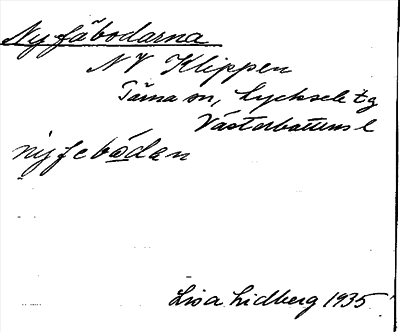 Nyfäbodarna
NV Klippen
Tärna sn, Lycksele tg
Västerbottens l
nyfebodan
Lisa Lidberg 1935